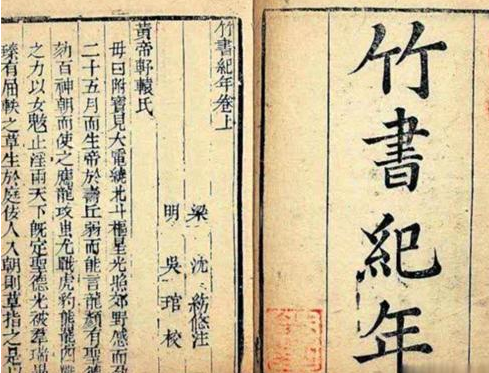 竹書紀年
竹書紀年卷上
梁 沈約 注
明 吳琯 校
黃帝軒轅氏
母曰附寶見大電繞北斗樞星光照郊野感而孕
二十五月而生帝於壽丘弱而能言龍顏有聖德
劾百神朝而使之應龍攻蚩尤戰虎豹熊羆四
之力以女魃止淫雨天下既定聖德光被羣瑞畢
臻有屈軼之草生於庭佞人入朝則草指之是